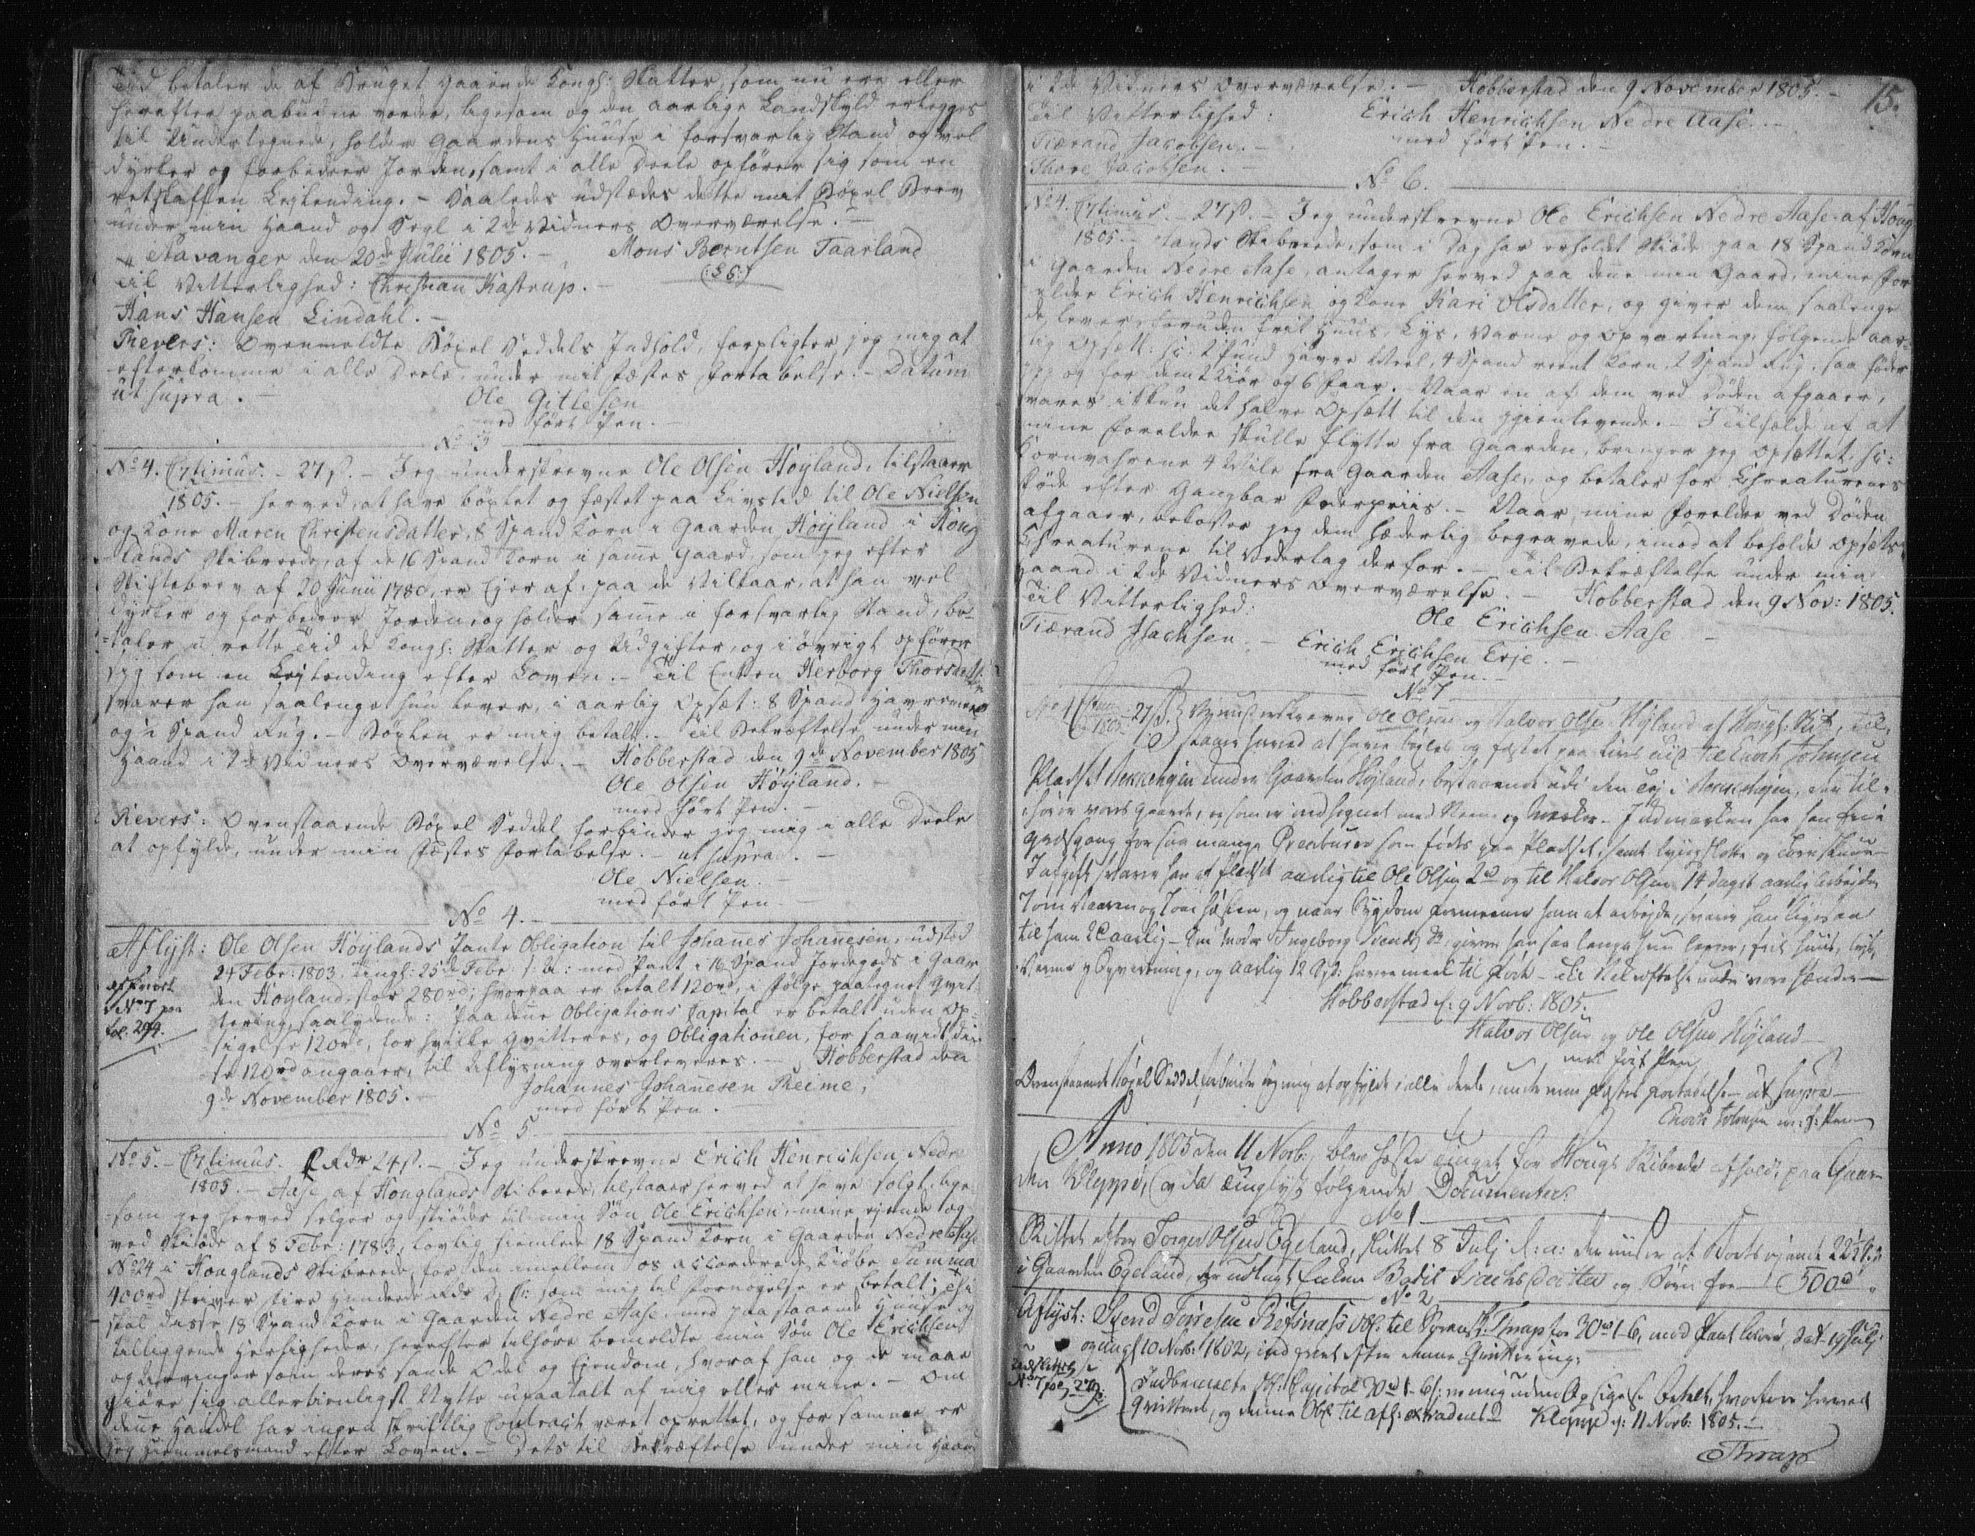 Tid betaler de af Bruget gaaende Kongl: Skatter, som nu ere eller
herefter paabudne vorde, ligesom og den aarlige Landskyld erlegges
til Undertegnede, holder Gaardens Huuse i forsvarlig Stand og vel
dyrker og forbedrer Jorden, samt i alle Deele opfører sig som en
retskaffen Leylending. - Saaledes udstædes dette mit Böxel Brev
under min Haand og Segl i 2de Vidners Overværelse. -
Stavanger den 20de Julii 1805. - Mons Berntsen Taarland
Til Vitterlighed: Christian Kastrup. - (L.S.)
Hans Hansen Lindahl. -
Revers: Ovenmeldte Böxel Seddels Indhold, forpligter jeg mig at
efterkomme i alle Deele, under mit Fæstes Fortabelse. - Datum
ut supra. - Ole Gitlesen
med ført Pen. -
No 3
No 4. Cr. timus. - 27 s. - Jeg underskrevne Ole Olsen Höyland, tilstaaer
1805. - herved, at have böxlet og fæstet paa Livstid til Ole Nielsen
og Kone Maren Christensdatter, 8 Spand Korn i Gaarden Höyland i Houg-
lands Skibrede, af de 16 Spand Korn i samme Gaard, som jeg efter
Skiftebrev af 20 Junii 1780, er Ejer af, paa de Vilkaar, at han vel
dyrker og forbedrer Jorden, og holder samme i forsvarlig Stand, be-
taler i rette Tid de Kongl: Skatter og Udgifter, og i øvrigt opfører
sig som en Leylending efter Loven. - Til Enken Herborg Thorsdatter
svarer han saalenge hun lever, i aarlig Opsæt: 8 Spand Havremeel
og 2 Spand Rug. - Böxlen er mig betalt. - Til Bekræftelse under min
Haand i 2de Vidners Overværelse. - Hobberstad den 9de November 1805
Ole Olsen Höyland. -
med ført Pen. -
Revers: Ovenstaaende Böxel Seddel forbinder jeg mig i alle Deele
at opfylde, under min Fæstes Fortabelse. - ut supra. -
Ole Nielsen. -
med ført Pen -
No 4. -
Aflyst: Ole Olsen Höylands Pante Obligation til Johannes Johannesen, udsted
24 Febr: 1803, tingl: 25de Febr: s. A: med Pant i 16 Spand Jordegods i Gaar-
den Höyland, stor 280 rd; hvorpaa er betalt 120 rd, i følge paategnet Qvit-
tering, saalydende: Paa denne Obligations Capital er betalt uden Op-
sigelse 120 rd, for hvilke qvitteres, og Obligationen, for saavidt dis-
se 120 rd angaaer, til Aflysning overleveres. - Hobberstad den
9de November 1805. - Johannes Johannesen Reime,
med ført Pen. -
afført
No 7 paa
fol. 299.
No 5
No 5. - Cr. timus. 2 Rdr 24 s. - Jeg underskrevne Erich Henrichsen Nedre
1805. - Aase af Houglands Skibrede, tilstaaer herved at have solgt, lige-
som jeg herved selger og skiøder til min Søn Ole Erichsen, mine ejende og
ved Skiøde af 8 Febr: 1783, lovlig hiemlede 18 Spand Korn i Gaarden Nedre Aase
No 24 i Houglands Skibrede, for den imellem os accorderede Kiøbe Summa
400 rd skriver fire hundrede Rdr D. C: som mig til Fornøyelse er betalt; thi
skal disse 18 Spand Korn i Gaarden Nedre Aase, med paastaaende Huuse og
tilliggende Herligheder, herefter tilhøre bemeldte min Søn Ole Erichsen
og Arvinger som deres sande Odel og Ejendom, hvoraf han og de maae
giøre sig allertienligst Nytte upaatalt af mig eller mine. - Om
denne Handel har ingen skriftlig Contract været oprettet, og for samme er
jeg Hiemmelsmand efter Loven. - Dets til Bekræftelse under min Haand
15.
i 2de Vidners Overværelse. - Hobberstad den 9 November 1805. -
Til Vitterlighed: Erich Henrichsen Nedre Aase. -
Tiærand Jacobsen. - med ført Pen. -
Thore Jacobsen. -
No 6.
No 4. Cr. timus. - 27 s. - Jeg underskrevne Ole Erichsen Nedre Aase af Houg-
1805. - lands Skibrede, som i Dag har erholdt Skiøde paa 18 Spand Korn
i Gaarden Nedre Aase, antager herved paa denne min Gaard, mine for-
eldre Erich Henrichsen og Kone Kari Olsdatter, og giver dem saalenge
de lever, foruden frit Huus, Lys, Varme og Opvartning, følgende aar-
lig Opsætt: sc: 2 Pund Havre Meel, 4 Spand reent Korn, 2 Spand Rug, saa føder
jeg og for dem 2 Kiør og 6 Faar. - Naar en af dem ved Døden afgaaer,
svares ikkun det halve Opsætt til den gienlevende. - I Tilfælde af at
mine Foreldre skulle flytte fra Gaarden, bringer jeg Opsættet, sc:
Kornvahrene 4 Mile fra Gaarden Aase, og betaler for Chreaturenes
Føde efter Gangbar Foderpriis. - Naar mine Foreldre ved Døden
afgaaer, bekoster jeg dem hæderlig begravede, imod at beholde Opsæts
Chreaturene til Vederlag derfor. - Til Bekræftelse under min
Haand i 2de Vidners Overværelse. - Hobberstad den 9 Nov: 1805.
Til Vitterlighed: Ole Erichsen Aase. -
Tiærand Isachsen. - Erich Erichsen Erje. -
med ført Pen. -
No 7
27 s. Vi underskrevne Ole Olsen og Halvor Olsen Høyland af Hougl: Skib:, til-
1805 staaer herved at have böxlet og fæstet paa Livs Tid til Enoch Johnsen
Pladset under Gaarden Höyland, bestaaende udi den Tej i den til-
hører vores Gaarde, og som er indhegnet med Steene og Merker. - I Udmarken har han frie
Græsgang for saa mange Creaturer som fødes paa Pladset, samt Lyng slotte og Torvskuur
I afgift svarer han af Pladset aarlig til Ole Olsen 2 rd og til Halvor Olsen 14 dages aarlig Arbeyde
7 om Vaaren og 7 om Høsten, og naar Sygdom formeener ham at arbejde, svarer han ligesaa
til ham 2 rd aarlig - Sin Moder Ingeborg giver han saa lenge hun lever, frit Huus, Lys,
Varme og Opvartning, og aarlig 12 Spd: Havremeel til - Til Bekræftelse under vore Hænder -
Hobberstad d: 9 Novb: 1805.
Halvor Olsen og Ole Olsen Höyland -
med ført Pen
Ovenstaaende Böxel Seddel forbinder jeg mig at opfylde i alle deele, under min Fæstes Fortabelse - ut supra -
Enoch Johnsen m: f: Pen
Anno 1805 den 11 Novb: blev Høste Tinget for Hougl: Skibrede afholdt paa Gaar-
den Kleppe, og da Tinglyst følgende Documenter.
No 1
Skiftet efter Torger Olsen Egeland, sluttet 8 Julj d: a: der viiser at Boets ejende 22½
i Gaarden Egeland, er udlagt Enken Bodil Isachsdatter og Børn for - 500 rd
No 2
Aflyst: Svend Tørresen Obl: til Sorensk: Smap for 30 rd 1-6, med Pant dat: 19 Julj
og tingl: 10 Novb: 1802, indfriet efter denne Qvittering:
Indbemelte Capital 30 rd 1-6 s: er mig uden Opsigelse betalt, hvorfore herved
Qvitteret, og denne Obl: til afl: extraderet Kleppe d: 11 Novb: 1805. -
Smap